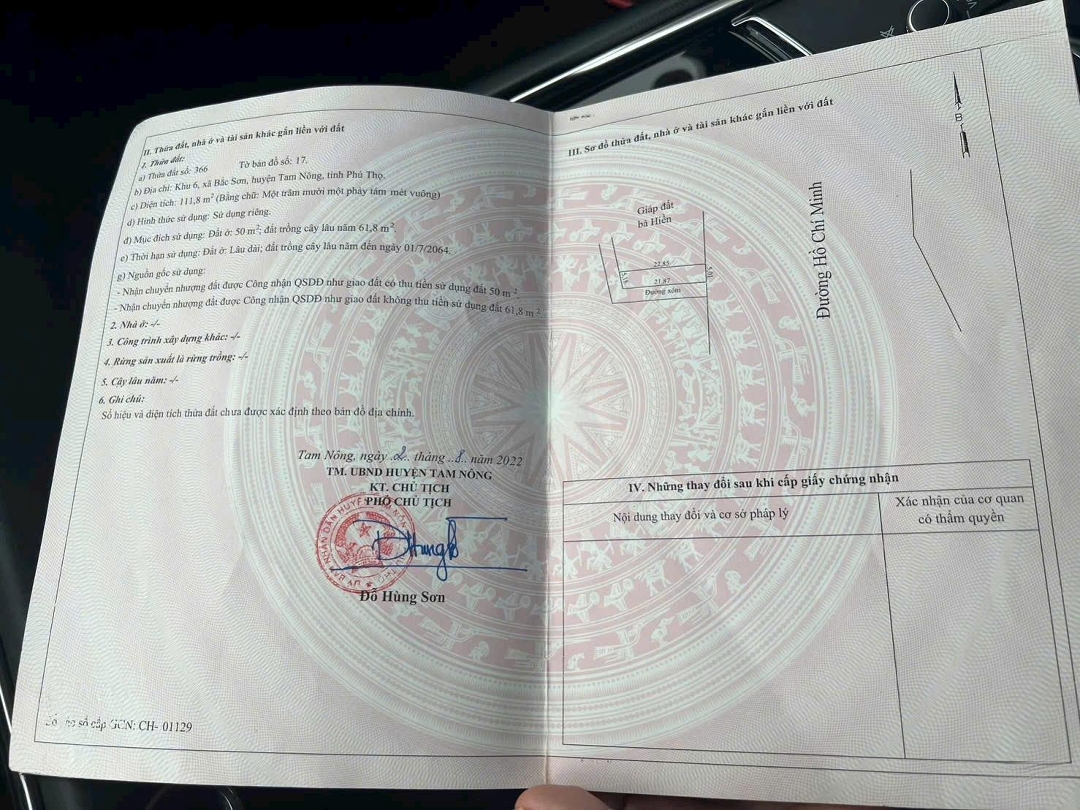 II. Thửa đất, nhà ở và tài sản khác gắn liền với đất
1. Thửa đất:
a) Thửa đất số: 366 Tờ bản đồ số: 17.
b) Địa chỉ: Khu 6, xã Bắc Sơn, huyện Tam Nông, tỉnh Phú Thọ.
c) Diện tích: 111,8 m² (Bằng chữ: Một trăm mười một phảy tám mét vuông)
d) Hình thức sử dụng: Sử dụng riêng.
đ) Mục đích sử dụng: Đất ở: 50 m²; đất trồng cây lâu năm 61,8 m².
e) Thời hạn sử dụng: Đất ở: Lâu dài; đất trồng cây lâu năm đến ngày 01/7/2064.
g) Nguồn gốc sử dụng:
- Nhận chuyển nhượng đất được Công nhận QSDĐ như giao đất có thu tiền sử dụng đất 50 m².
- Nhận chuyển nhượng đất được Công nhận QSDĐ như giao đất không thu tiền sử dụng đất 61,8 m².
2. Nhà ở: -/-
3. Công trình xây dựng khác: -/-
4. Rừng sản xuất là rừng trồng: -/-
5. Cây lâu năm: -/-
6. Ghi chú:
Số hiệu và diện tích thửa đất chưa được xác định theo bản đồ địa chính.
Tam Nông, ngày 2 tháng 8 năm 2022
TM. UBND HUYỆN TAM NÔNG
KT. CHỦ TỊCH
PHÓ CHỦ TỊCH
Đỗ Hùng Sơn
số cấp GCN: CH- 01129
III. Sơ đồ thửa đất, nhà ở và tài sản khác gắn liền với đất
B
Giáp đất
bà Hiền
22.85
21.87
Đường xóm
Đường Hồ Chí Minh
IV. Những thay đổi sau khi cấp giấy chứng nhận
Nội dung thay đổi và cơ sở pháp lý
Xác nhận của cơ quan
có thẩm quyền